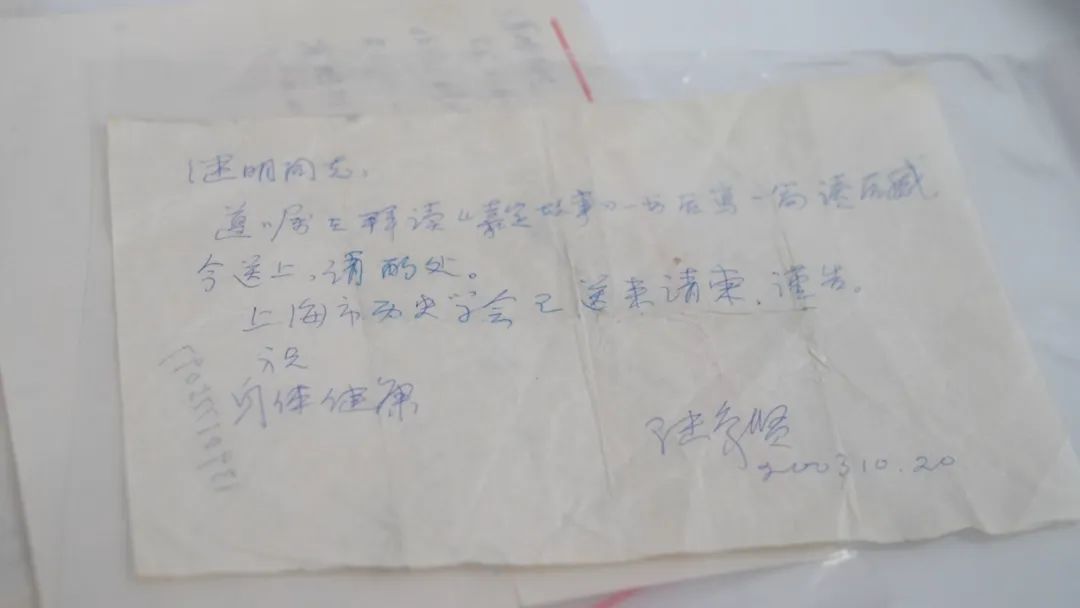 明同志，
遵嘱在拜读《嘉定故事》一书后写一篇读后感，
今送上，请酌处。
上海市历史学会已送来请柬，谨告。
祝
身体健康
陆象贤
2003.10.20